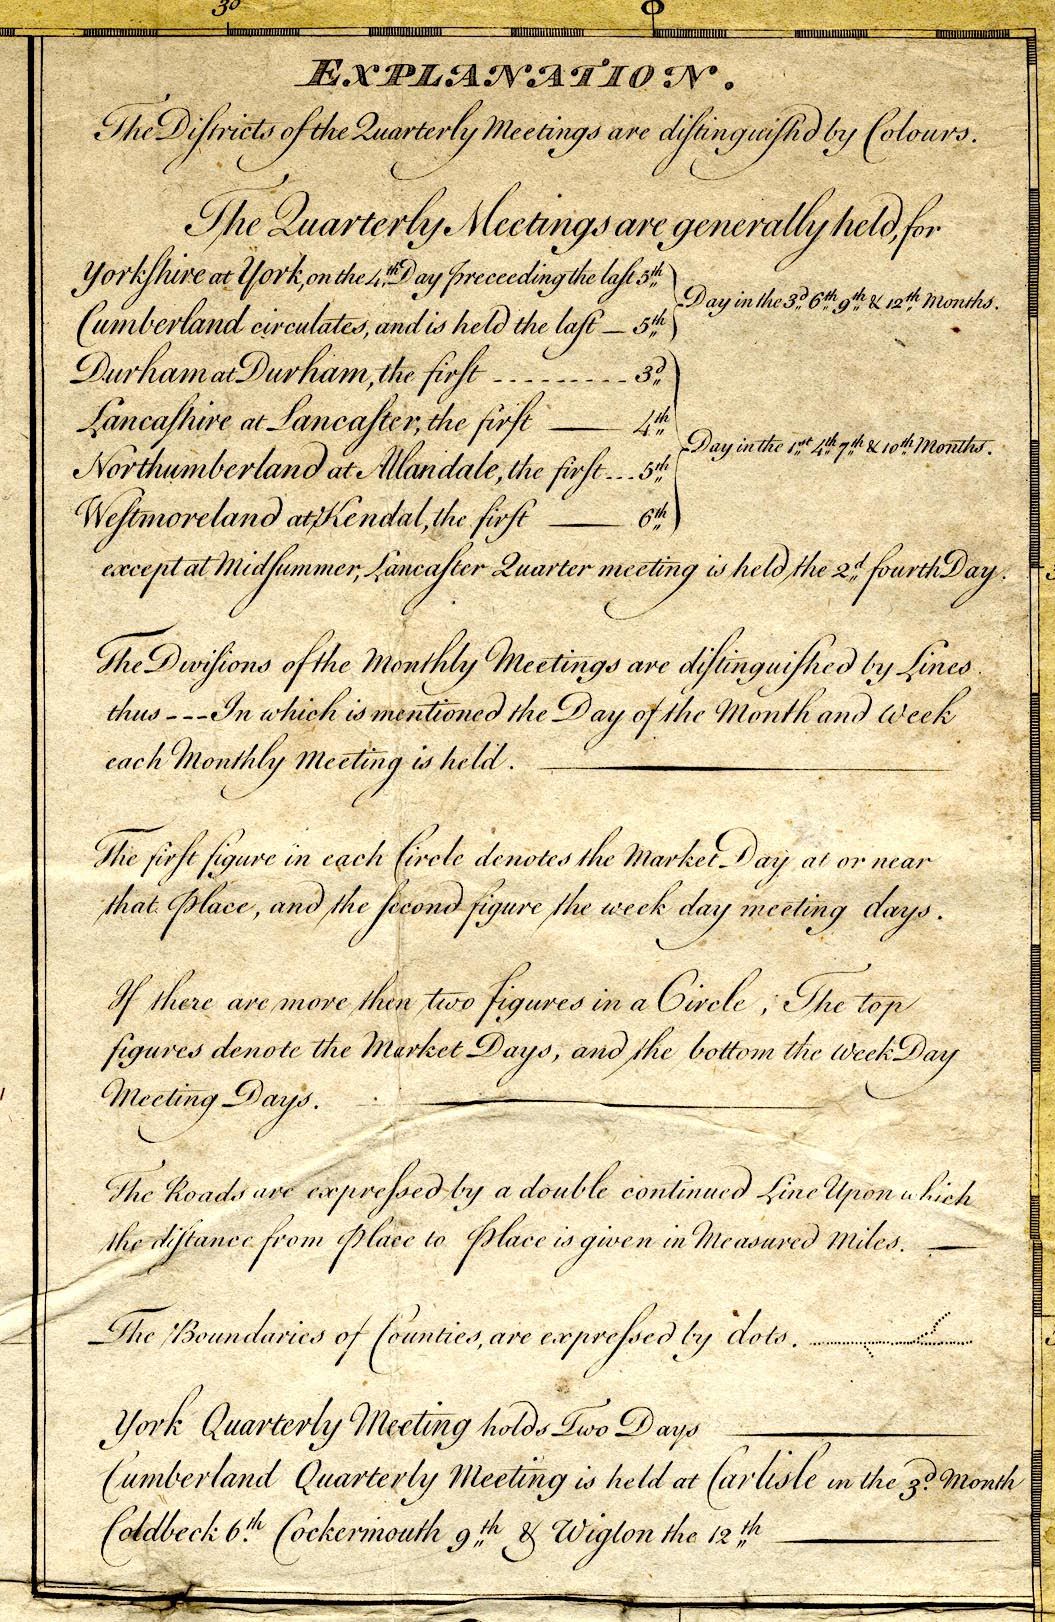 30
0
EXPLANATION.
The Districts of the Quarterly Meetings are distinguish'd by Colours.
The Quarterly Meetings are generally held, for
Yorkshire at York, on the 4th Day preceeding the last 5th
Cumberland circulates, and is held the last — 5th
Day in the 3d 6th 9th & 12th Months.
Durham at Durham, the first --------- 3d
Lancashire at Lancaster, the first —— 4th
Northumberland at Allandale, the first... 5th
Westmoreland at Kendal, the first —— 6th
Day in the 1st 4th 7th & 10th Months.
except at Midsummer, Lancaster Quarter meeting is held the 2d fourth Day.
The Divisions of the Monthly Meetings are distinguished by Lines
thus --- In which is mentioned the Day of the Month and Week
each Monthly Meeting is held.
The first figure in each Circle denotes the Market Day at or near
that Place, and the second figure the week day meeting days.
If there are more then two figures in a Circle; The top
figures denote the Market Days, and the bottom the week Day
Meeting Days.
The Roads are expressed by a double continued Line Upon which
the distance from Place to Place is given in Measured Miles.
The Boundaries of Counties, are expressed by dots.
York Quarterly Meeting holds Two Days
Cumberland Quarterly Meeting is held at Carlisle in the 3d Month
Coldbeck 6th Cockermouth 9th & Wigton the 12th